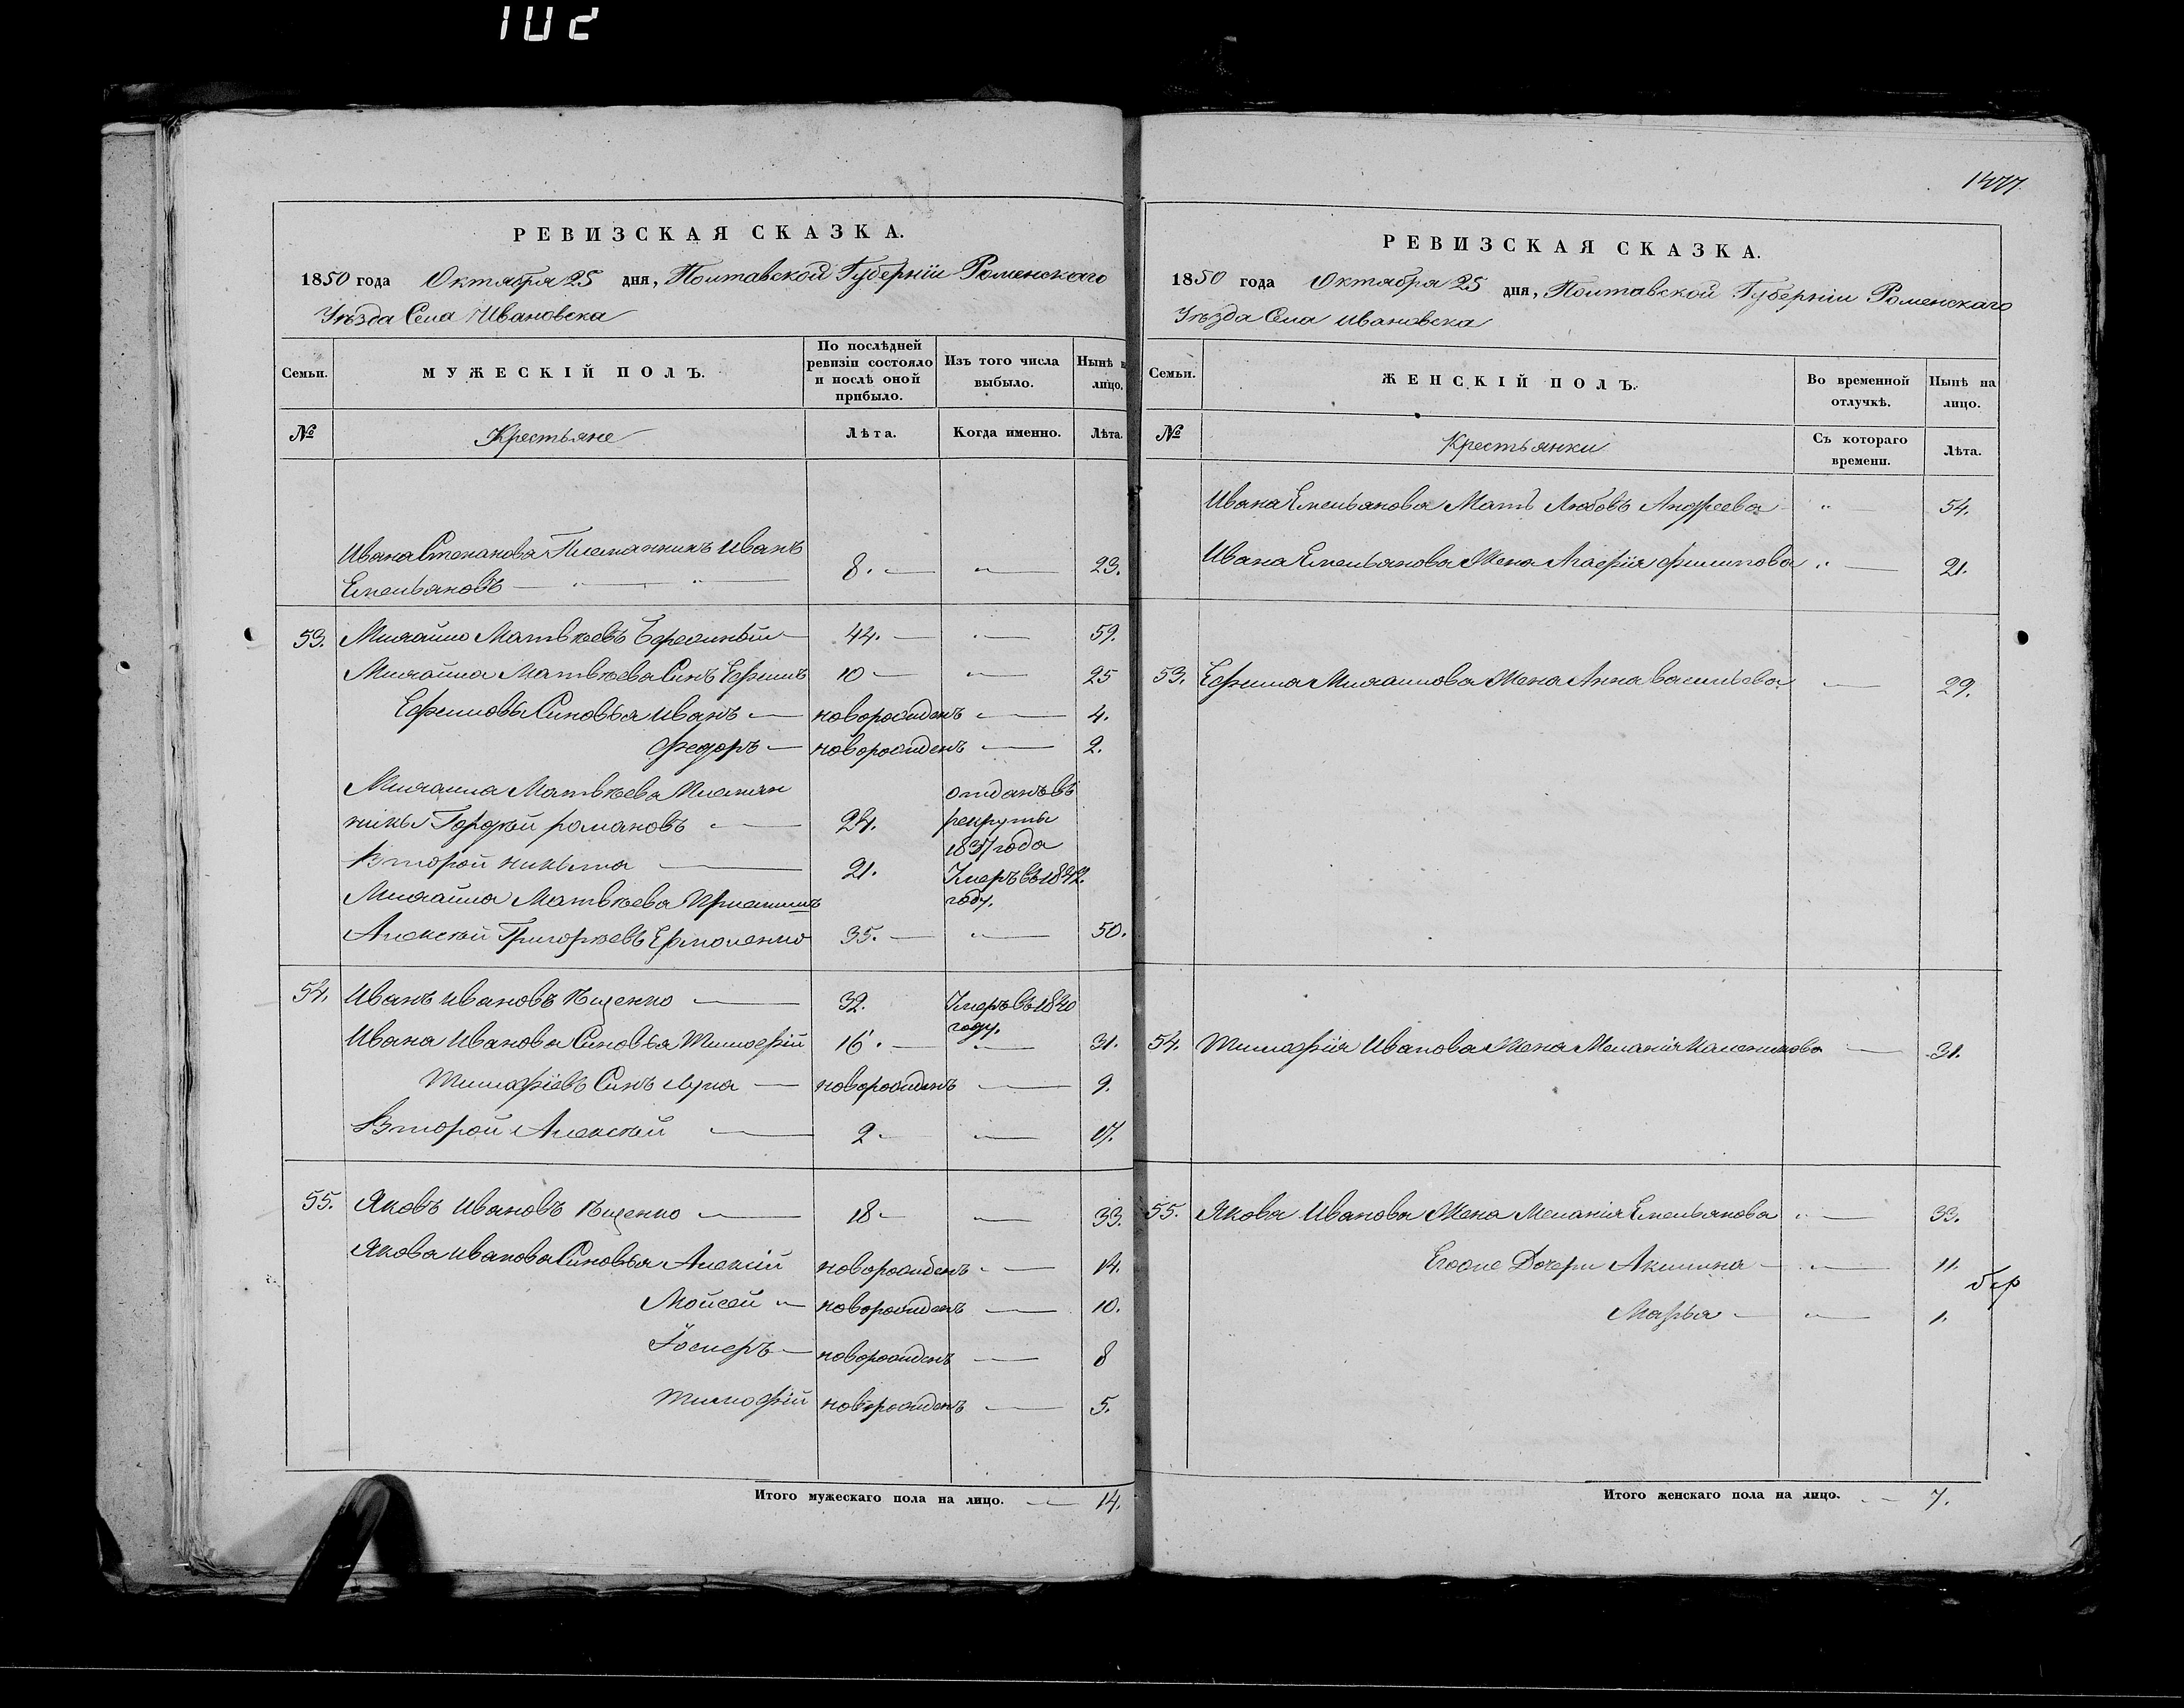 102
РЕВИЗСКАЯ СКАЗКА.
1850 года Октября 25 дня, Полтавской Губерніи Роменскаго
Уѣзда Села Ивановска
Семьи.
МУЖЕСКІЙ ПОЛЪ.
По послѣдней
ревизіи состояло
и послѣ оной
прибыло.
Изъ того числа
выбыло.
Нынѣ
лицо.
№
Крестьяне
Лѣта.
Когда именно.
Лѣта.
Ивана Степанова Племянникъ Иванъ
Емельяновъ 8. 23.
53. Михайло Матвѣевъ 44. 59.
Михайла Матвѣева Синъ Ефимъ 10 25
Ефимовы Синовья Иванъ новорожденъ 4.
Федоръ новорожденъ 2.
Михайла Матвѣева Племян отданъ въ
ники Гордѣй Романовъ 24. рекруты
1837 года
Второй Никита 21. Умеръ въ 1842.
Михайла Матвѣева году.
Алексѣй Григорьевъ Ермоленко 35. 50.
54. Иванъ Ивановъ Ищенко 32. Умеръ въ 1840
году.
Ивана Иванова Синовья Тимофій 16. 31.
Тимофіевъ Синъ Лука новорожденъ 9.
Второй Алексѣй 2 17.
55. Яковъ Ивановъ Ищенко 18 33.
Якова Иванова Синовья Алексій новорожденъ 14.
Мойсей новорожденъ 10.
новорожденъ 8
Тимофій новорожденъ 5.
Итого мужескаго пола на лицо. 14.
1477
РЕВИЗСКАЯ СКАЗКА.
1850 года Октября 25 дня, Полтавской Губерніи Роменскаго
Уѣзда Села Ивановска
Семьи.
ЖЕНСКІЙ ПОЛЪ.
Во временной
отлучкѣ.
Нынѣ на
лицо.
№
Крестьянки
Съ котораго
времени.
Лѣта.
Ивана Емельянова Мать Любовь Андреева 54.
Ивана Емельянова Жена Агафія Филипова 21.
53. Ефима Михайлова Жена Анна Васильева 29.
54. Тимофія Иванова Жена Меланія 31.
55. Якова Иванова Жена Меланія Емельянова 33.
Егоже Дочери Акилина 11.
Марья 1.
Итого женскаго пола на лицо. 7.